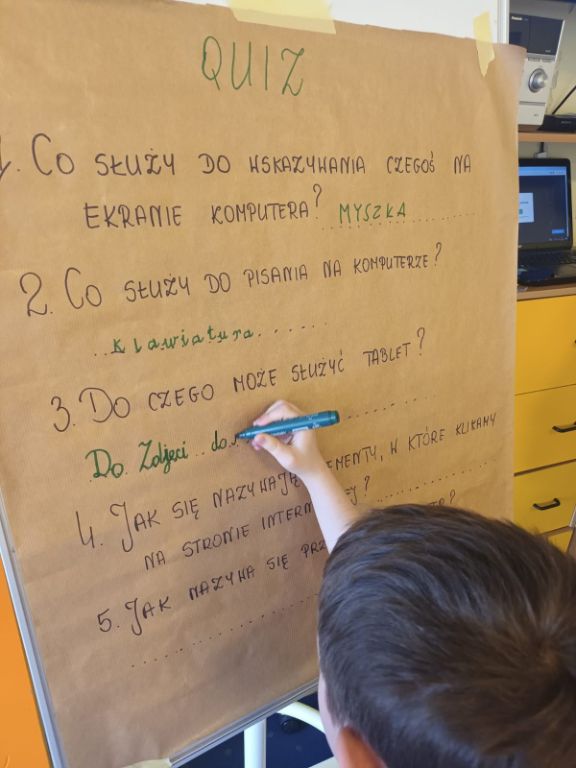 QUIZ
1. CO SŁUŻY DO WSKAZYWANIA CZEGOŚ NA
EKRANIE KOMPUTERA? MYSZKA
2. CO SŁUŻY DO PISANIA NA KOMPUTERZE?
klawiatura
3. DO CZEGO MOŻE SŁUŻYĆ TABLET?
Do Zdjęci do
4. JAK SIĘ NAZYWAJĄ W KTÓRE KLIKAMY
NA STRONIE
5. JAK NAZYWA SIĘ